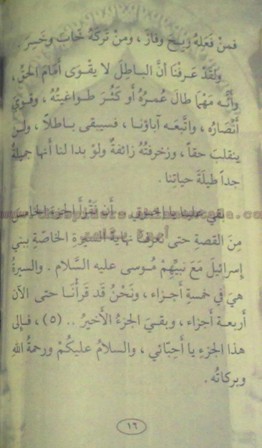 فمنْ فَعَلَهُ رَبِحَ وفَازَ ، ومنْ تَرَكَهُ خَابَ وخَسِرَ .
ولَقَدْ عَرفْنَا أنَّ البَاطلَ لا يقْوَى أمَامَ الحقِّ ،
وأنَّه مَهْمَا طالَ عُمرُهُ أو كَثُرَ طواغيتُهُ ، وقَوِيَ
أنْصَارُه ، واتَّبَعَه آباؤنَا ، فسيبقى باطلاً ، ولَنْ
ينقلبَ حقاً ، وزخرفتُه زائفةٌ ولوْ بدا لنا أنها جميلةٌ
جداً طيلَةَ حياتِنا .
بقي علينا يا إخوتي أن نَقْرَأ الجزءَ الخامسَ
مِنَ القصةِ حتى نعرفَ نهايةَ السيرة الخاصّةِ ببني
إسرائيلَ مَعَ نبيِّهمْ مُوسى عليه السَّلام . والسيرةُ
هيَ في خمسةِ أجزاء ، ونَحْنُ قد قَرأنَا حتى الآن
أربعةَ أجزاء ، وبقيَ الجزءُ الأخيرُ .. (٥) ، فإلى
هذا الجزءِ يا أحِبَّائي ، والسلامُ عليكُمْ ورحمةُ اللهِ
وبركاتُه .
١٦